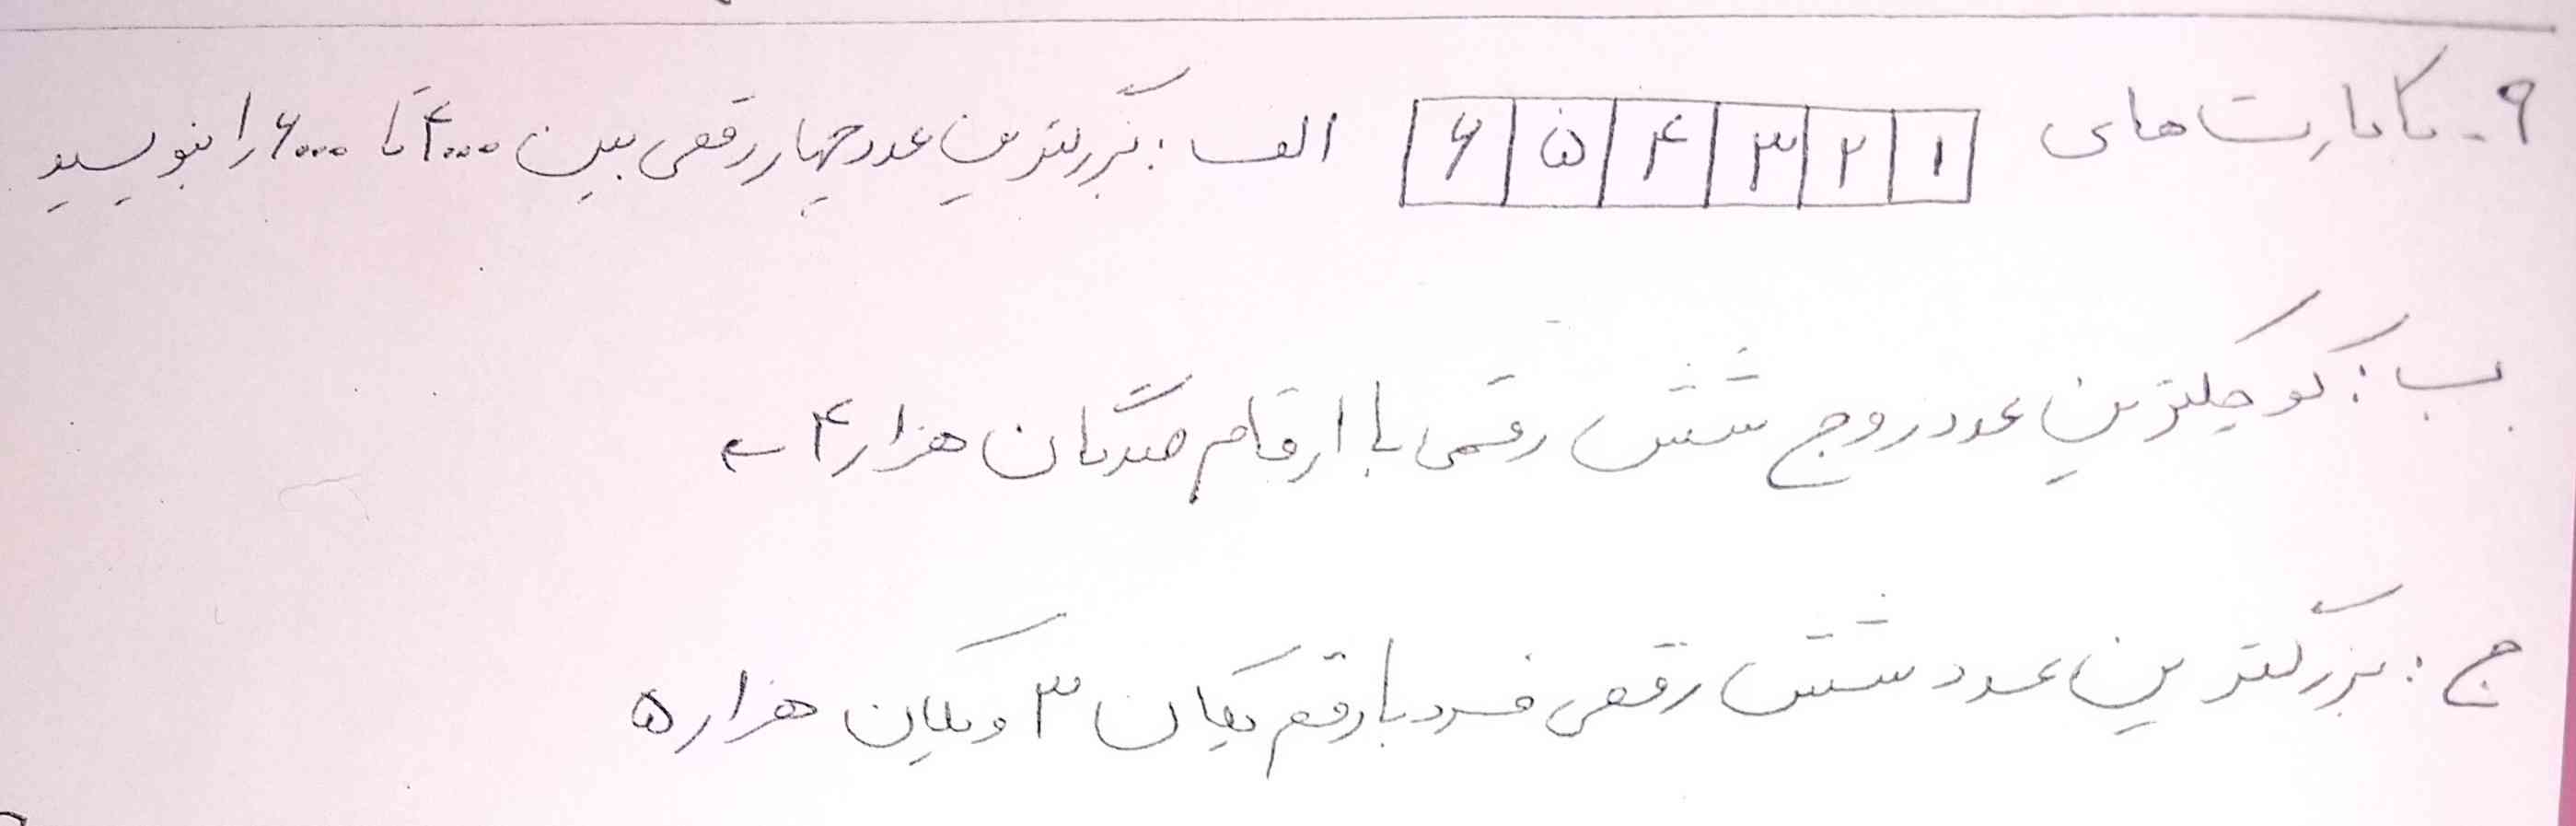 ۹- با کارت های ۱ ۲ ۳ ۴ ۵ ۶ الف: بزرگترین عدد چهار رقمی بین ۴۰۰۰ تا ۶۰۰۰ را بنویسید
ب: کوچکترین عدد زوج شش رقمی با ارقام صدگان هزار ۴ ←
ج: بزرگترین عدد شش رقمی فرد با رقم یکان ۳ و یکان هزار ۵